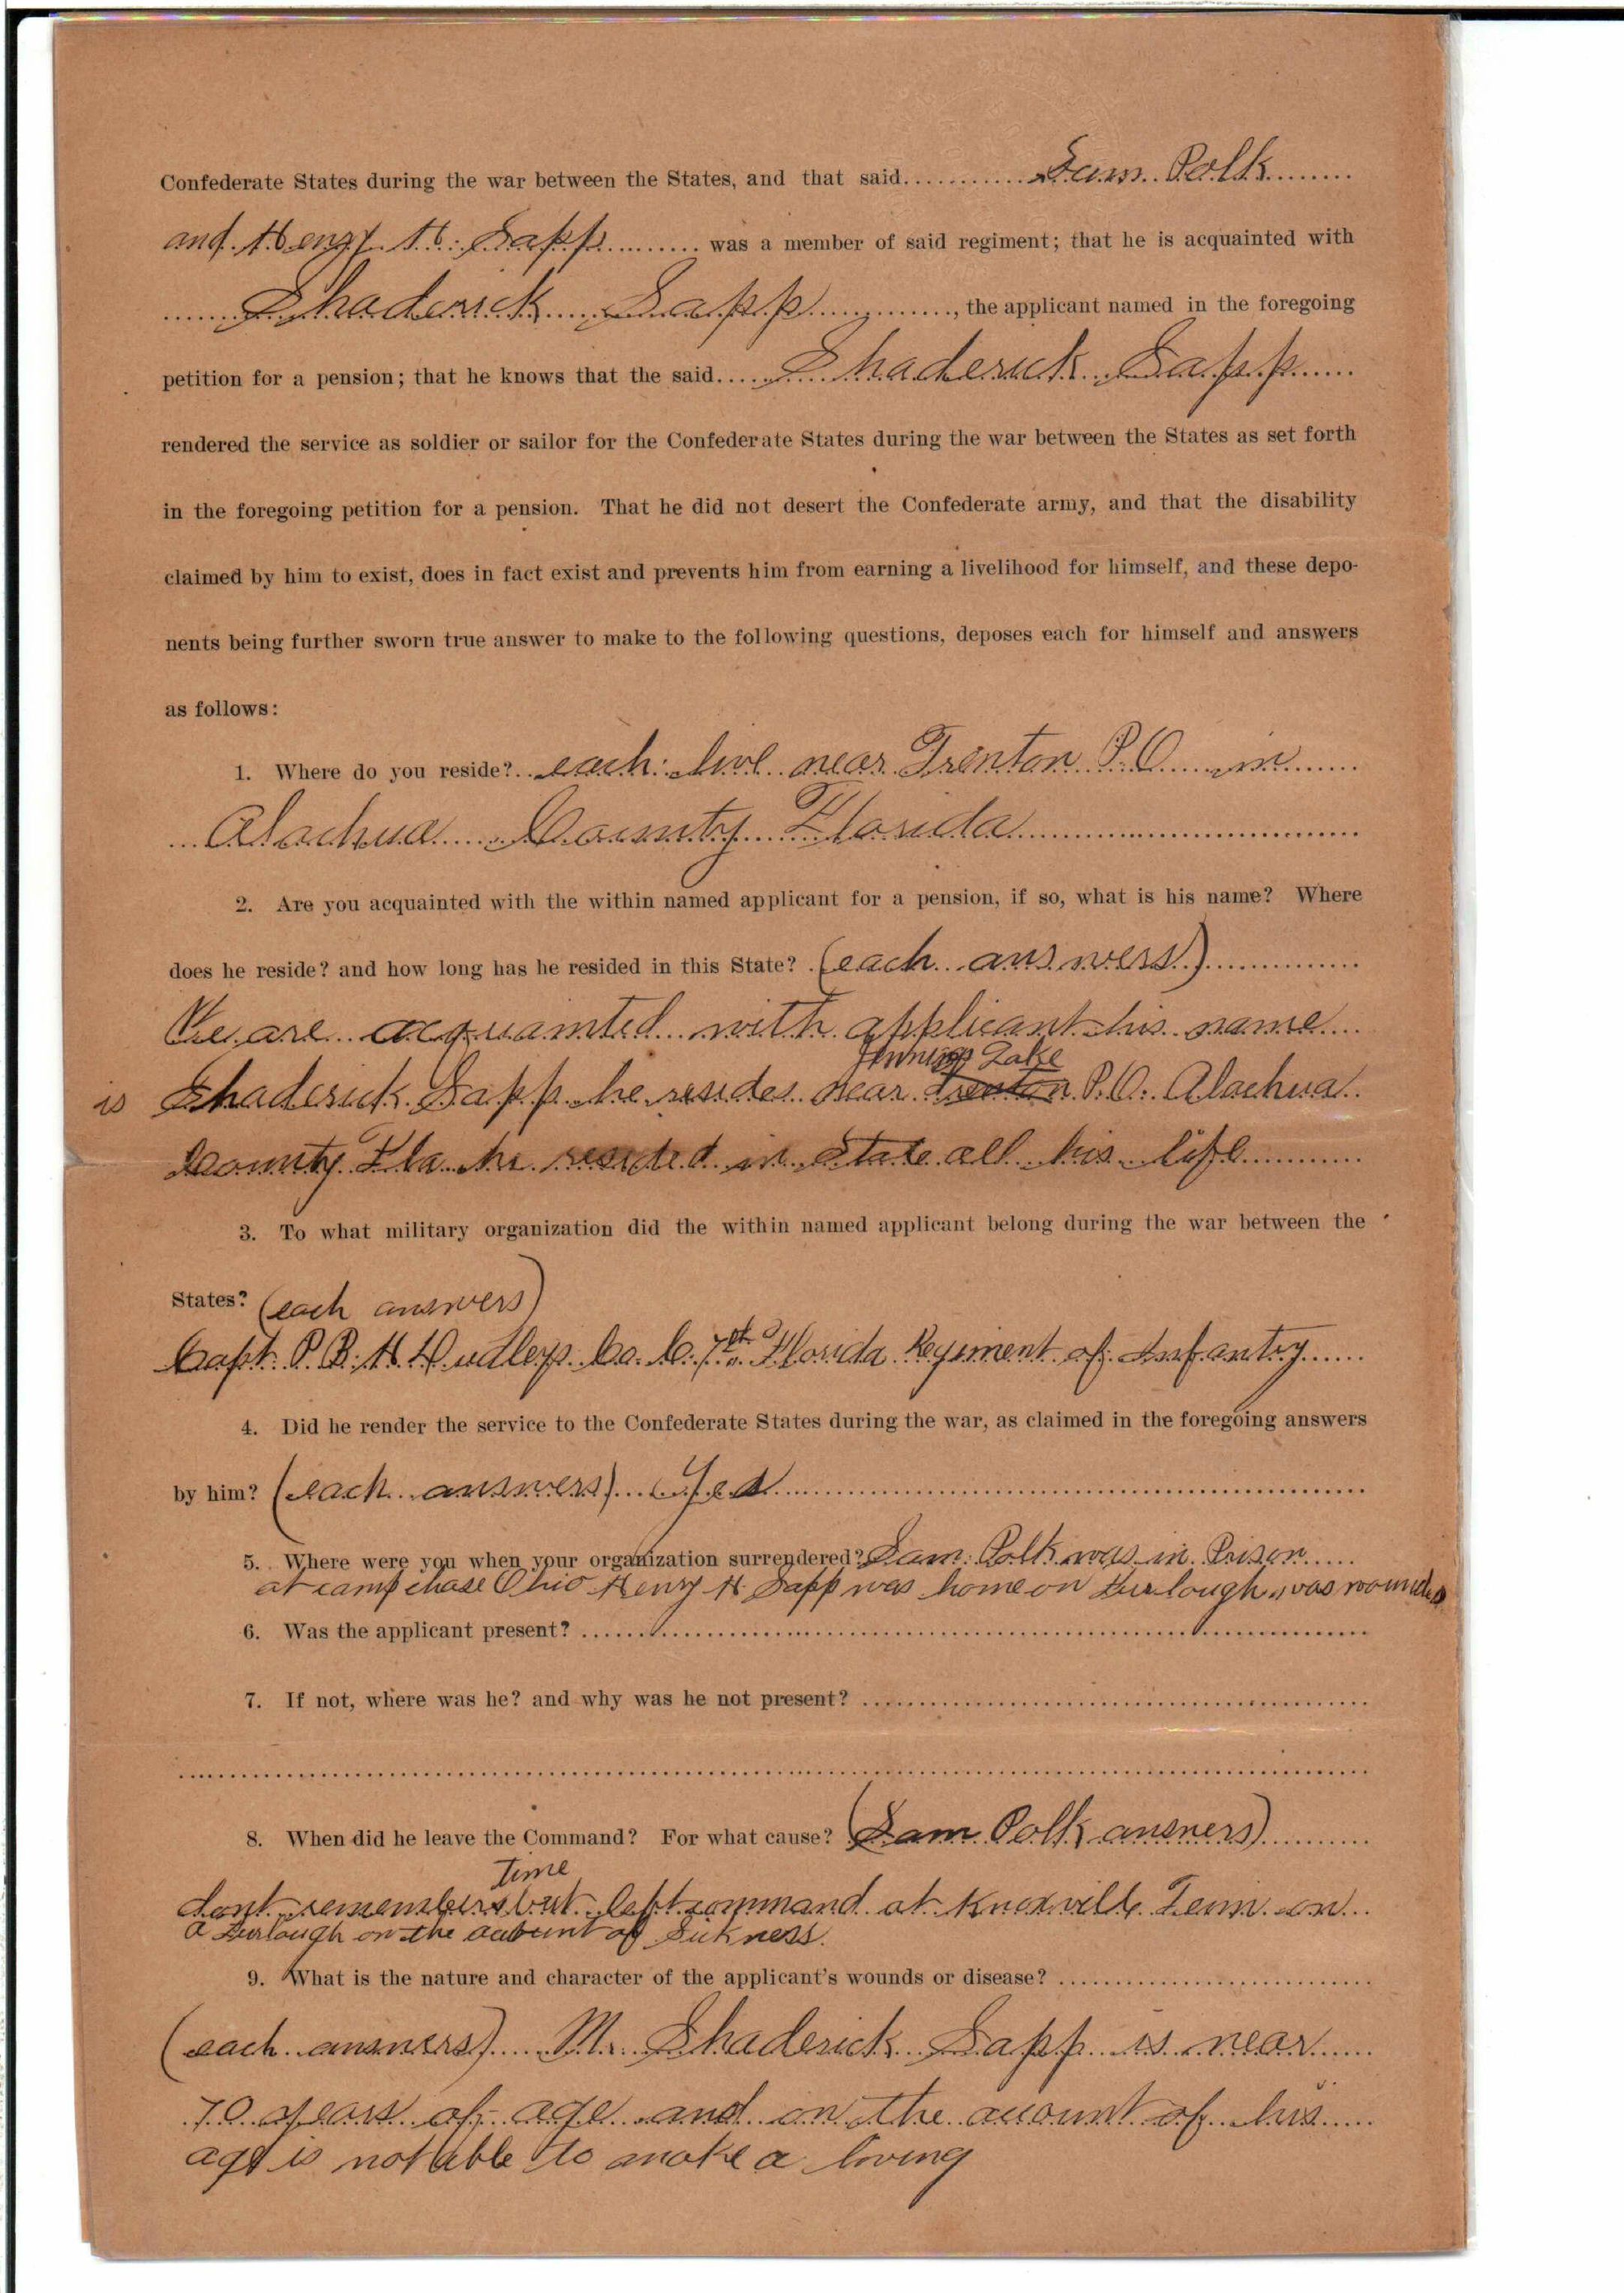 Confederate States during the war between the States, and that said Sam Polk
and Henry H. Sapp was a member of said regiment; that he is acquainted with
Shaderick Sapp, the applicant named in the foregoing
petition for a pension; that he knows that the said Shaderick Sapp
rendered the service as soldier or sailor for the Confederate States during the war between the States as set forth
in the foregoing petition for a pension. That he did not desert the Confederate army, and that the disability
claimed by him to exist, does in fact exist and prevents him from earning a livelihood for himself, and these depo-
nents being further sworn true answer to make to the following questions, deposes each for himself and answers
as follows:
1. Where do you reside? each live near Trenton P.O. in
Alachua County Florida
2. Are you acquainted with the within named applicant for a pension, if so, what is his name? Where
does he reside? and how long has he resided in this State? (each answers)
We are acquainted with applicant his name
Lake
is Shaderick Sapp he resides near Trenton P.O. Alachua
County Fla he resided in State all his life
3. To what military organization did the within named applicant belong during the war between the
States? (each answers)
Capt. P. B. H. Dudleys Co. C. 7th Florida Regiment of Infantry
4. Did he render the service to the Confederate States during the war, as claimed in the foregoing answers
by him? (each answers) Yes
5. Where were you when your organization surrendered? Sam Polk was in Prison
at camp chase Ohio Henry H Sapp was home on Furlough was wounded
6. Was the applicant present?
7. If not, where was he? and why was he not present?
8. When did he leave the Command? For what cause? (Sam Polk answers)
time
dont remembers but left command at Knoxville Tenn on
a Furlough on the account of Sickness.
9. What is the nature and character of the applicant's wounds or disease?
(each answers) Mr. Shaderick Sapp is near
70 years of age and on the account of his
age is not able to make a living